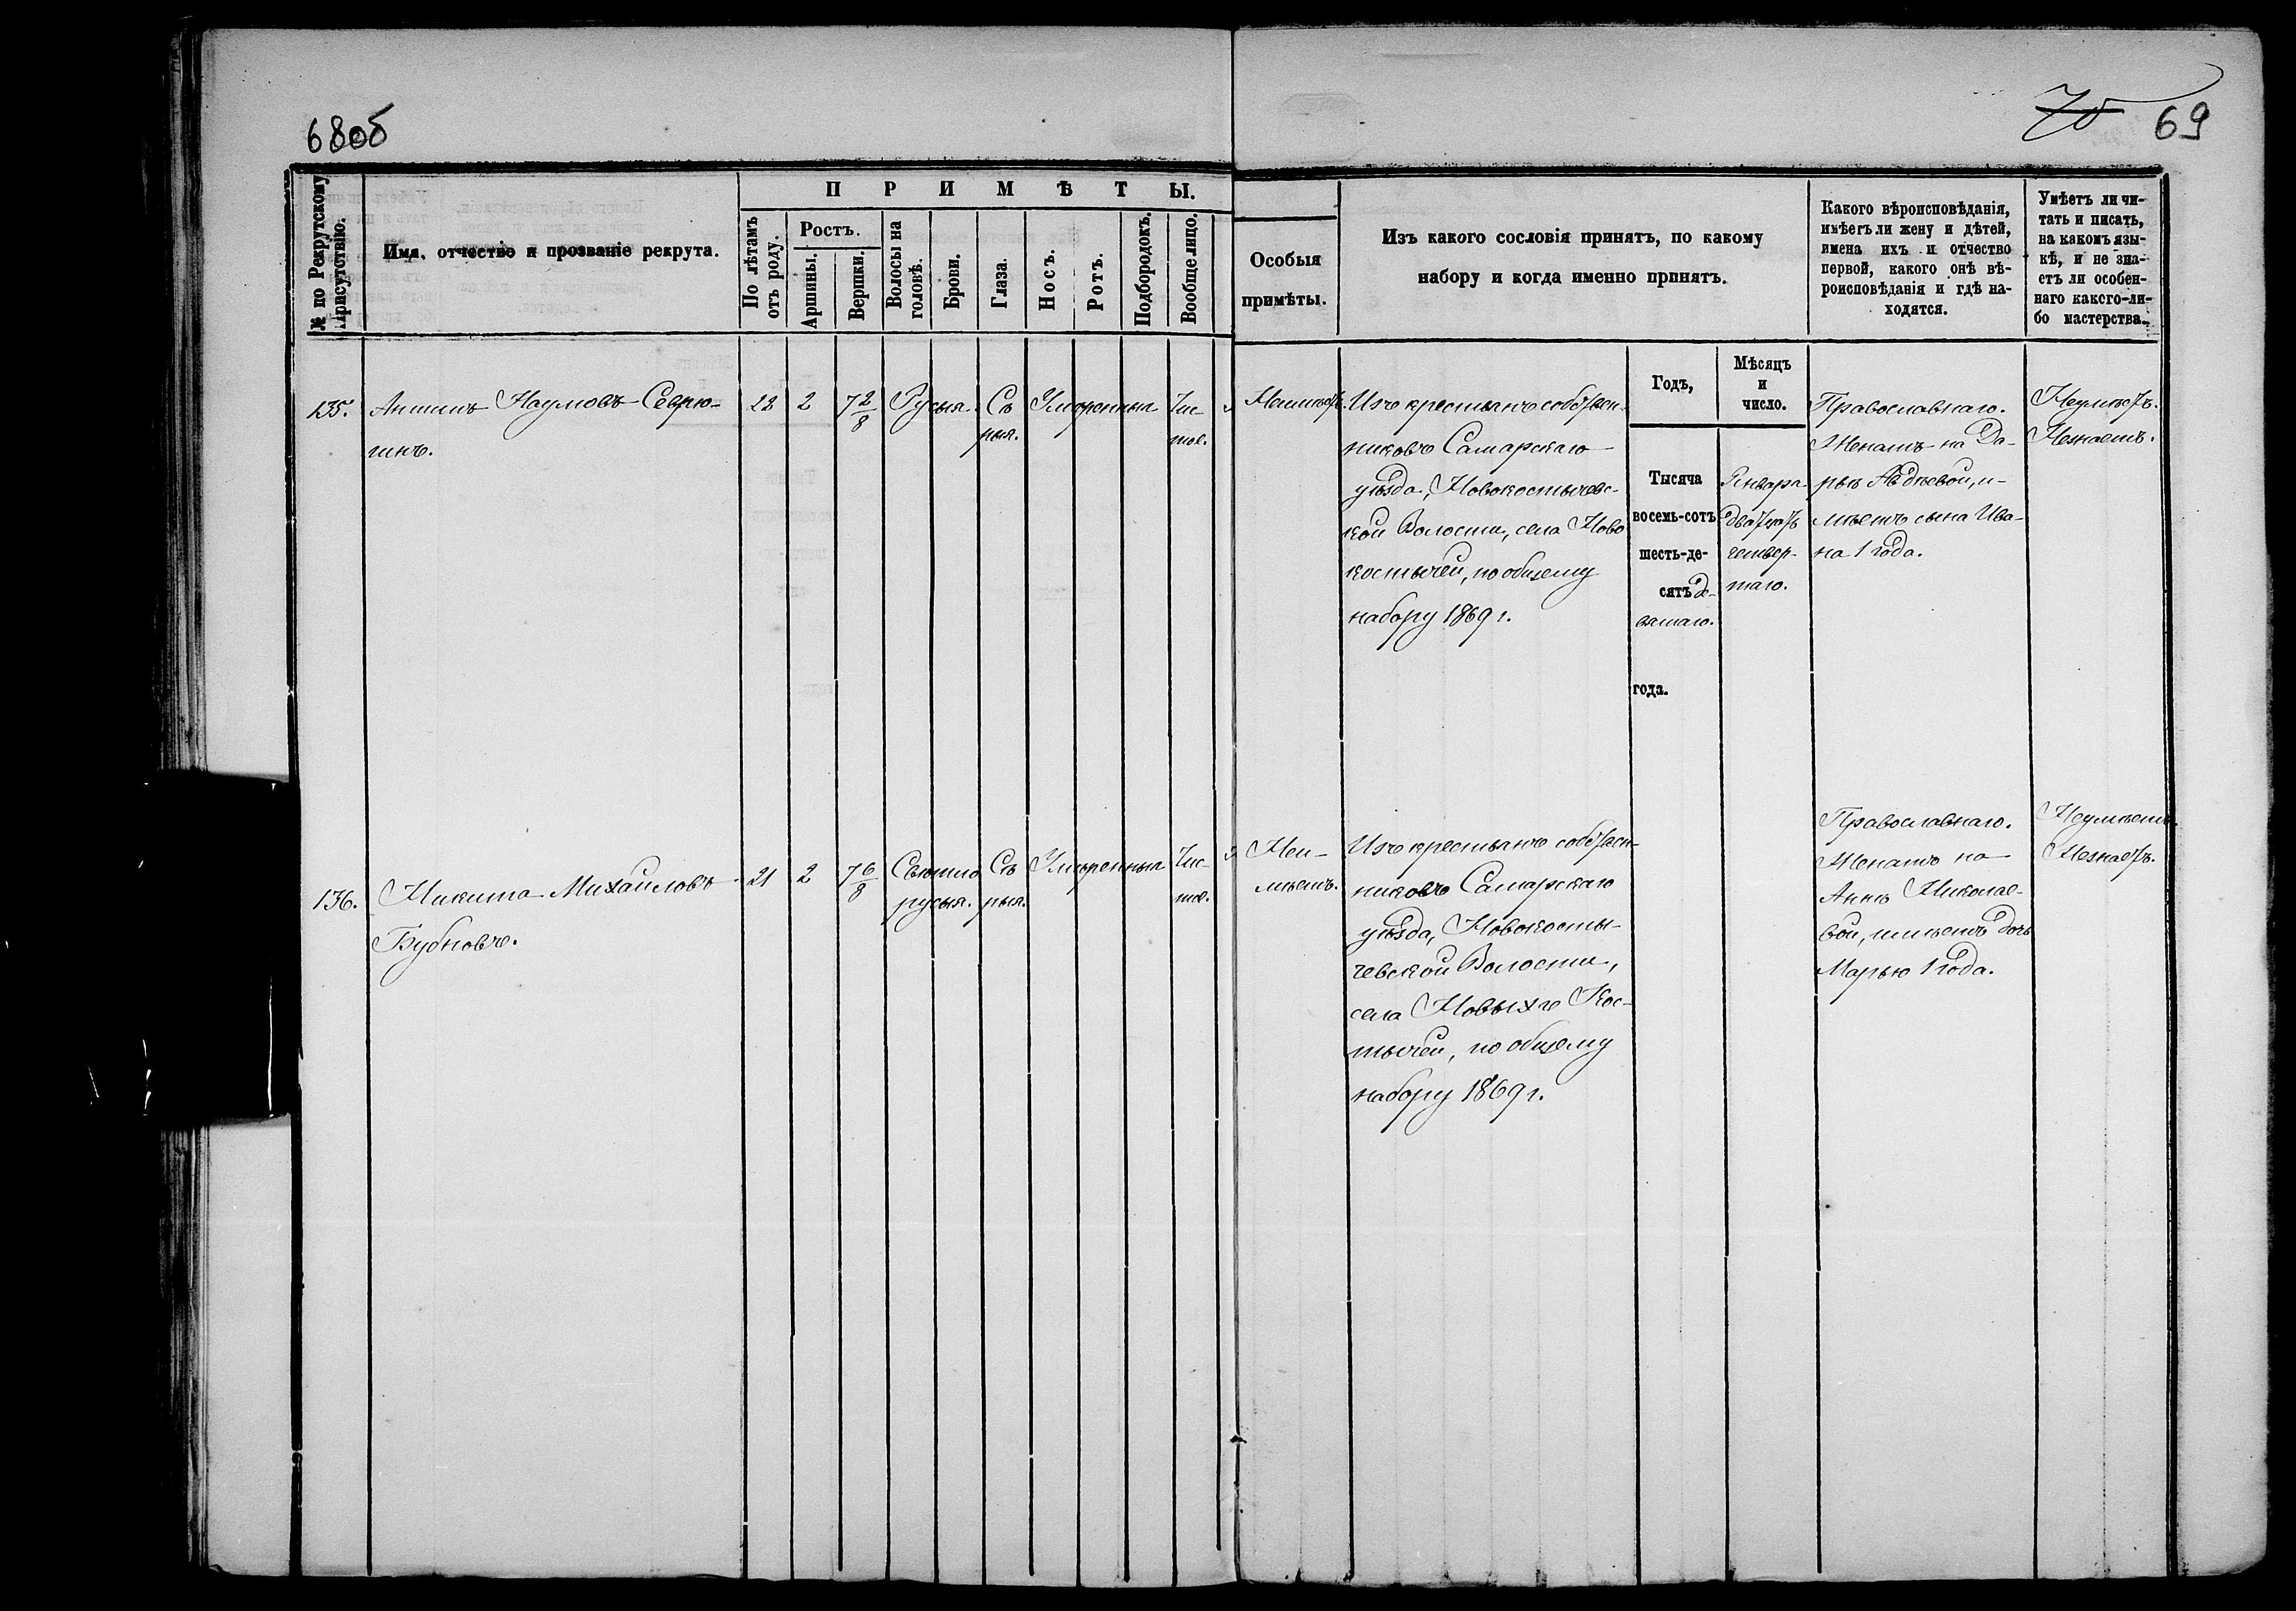 68об
70 69
№ по Рекрутскому Присутствію.
Имя, отчество и прозваніе рекрута.
ПРИМѢТЫ.
По лѣтамъ отъ роду.
Ростъ.
Аршины.
Вершки.
Волосы на головѣ.
Брови.
Глаза.
Носъ.
Ротъ.
Подбородокъ.
Вообще лицо.
Особыя
примѣты.
Изъ какого сословія принятъ, по какому
набору и когда именно принятъ.
Какого вѣроисповѣданія,
имѣетъ ли жену и дѣтей,
имена ихъ и отчество
первой, какого онѣ вѣ-
роисповѣданія и гдѣ на-
ходятся.
Умѣетъ ли чи-
тать и писать,
на какомъ язы-
кѣ, и не зна-
етъ ли особен-
наго какого-ли-
бо мастерства.
Годъ,
Мѣсяцъ
и
число.
135.
Антипъ Наумовъ Севрю-
гинъ.
22 2 7 2/8 Русыя. Сѣ Умѣренныя Чис-
рыя. тое.
Неимѣетъ.
Изъ крестьянъ собствен-
никовъ Самарскаго
уѣзда, Новокостычевс-
кой Волости, села Ново
костычей, по общему
набору 1869 г.
Тысяча
восемь-сотъ
шесть-де-
сятъ де-
вятаго.
года.
Января
двадцать
четвер-
таго.
Православнаго.
Женатъ на Да-
рьѣ Авдѣевой, и-
мѣетъ сына Ива-
на 1 года.
Неумѣетъ.
Незнаетъ.
136.
Никита Михайловъ
Бубновъ.
21 2 7 6/8 Свѣтло Сѣ Умѣренныя Чис-
русыя. рыя. тое.
Неи-
мѣетъ.
Изъ крестьянъ собствен-
никовъ Самарскаго
уѣзда, Новокосты-
чевской Волости,
села Новыхъ Кос-
тычей, по общему
набору 1869 г.
Православнаго.
Женатъ на
Аннѣ Николае-
вой, имѣетъ дочь
Марью 1 года.
Неумѣетъ.
Незнаетъ.